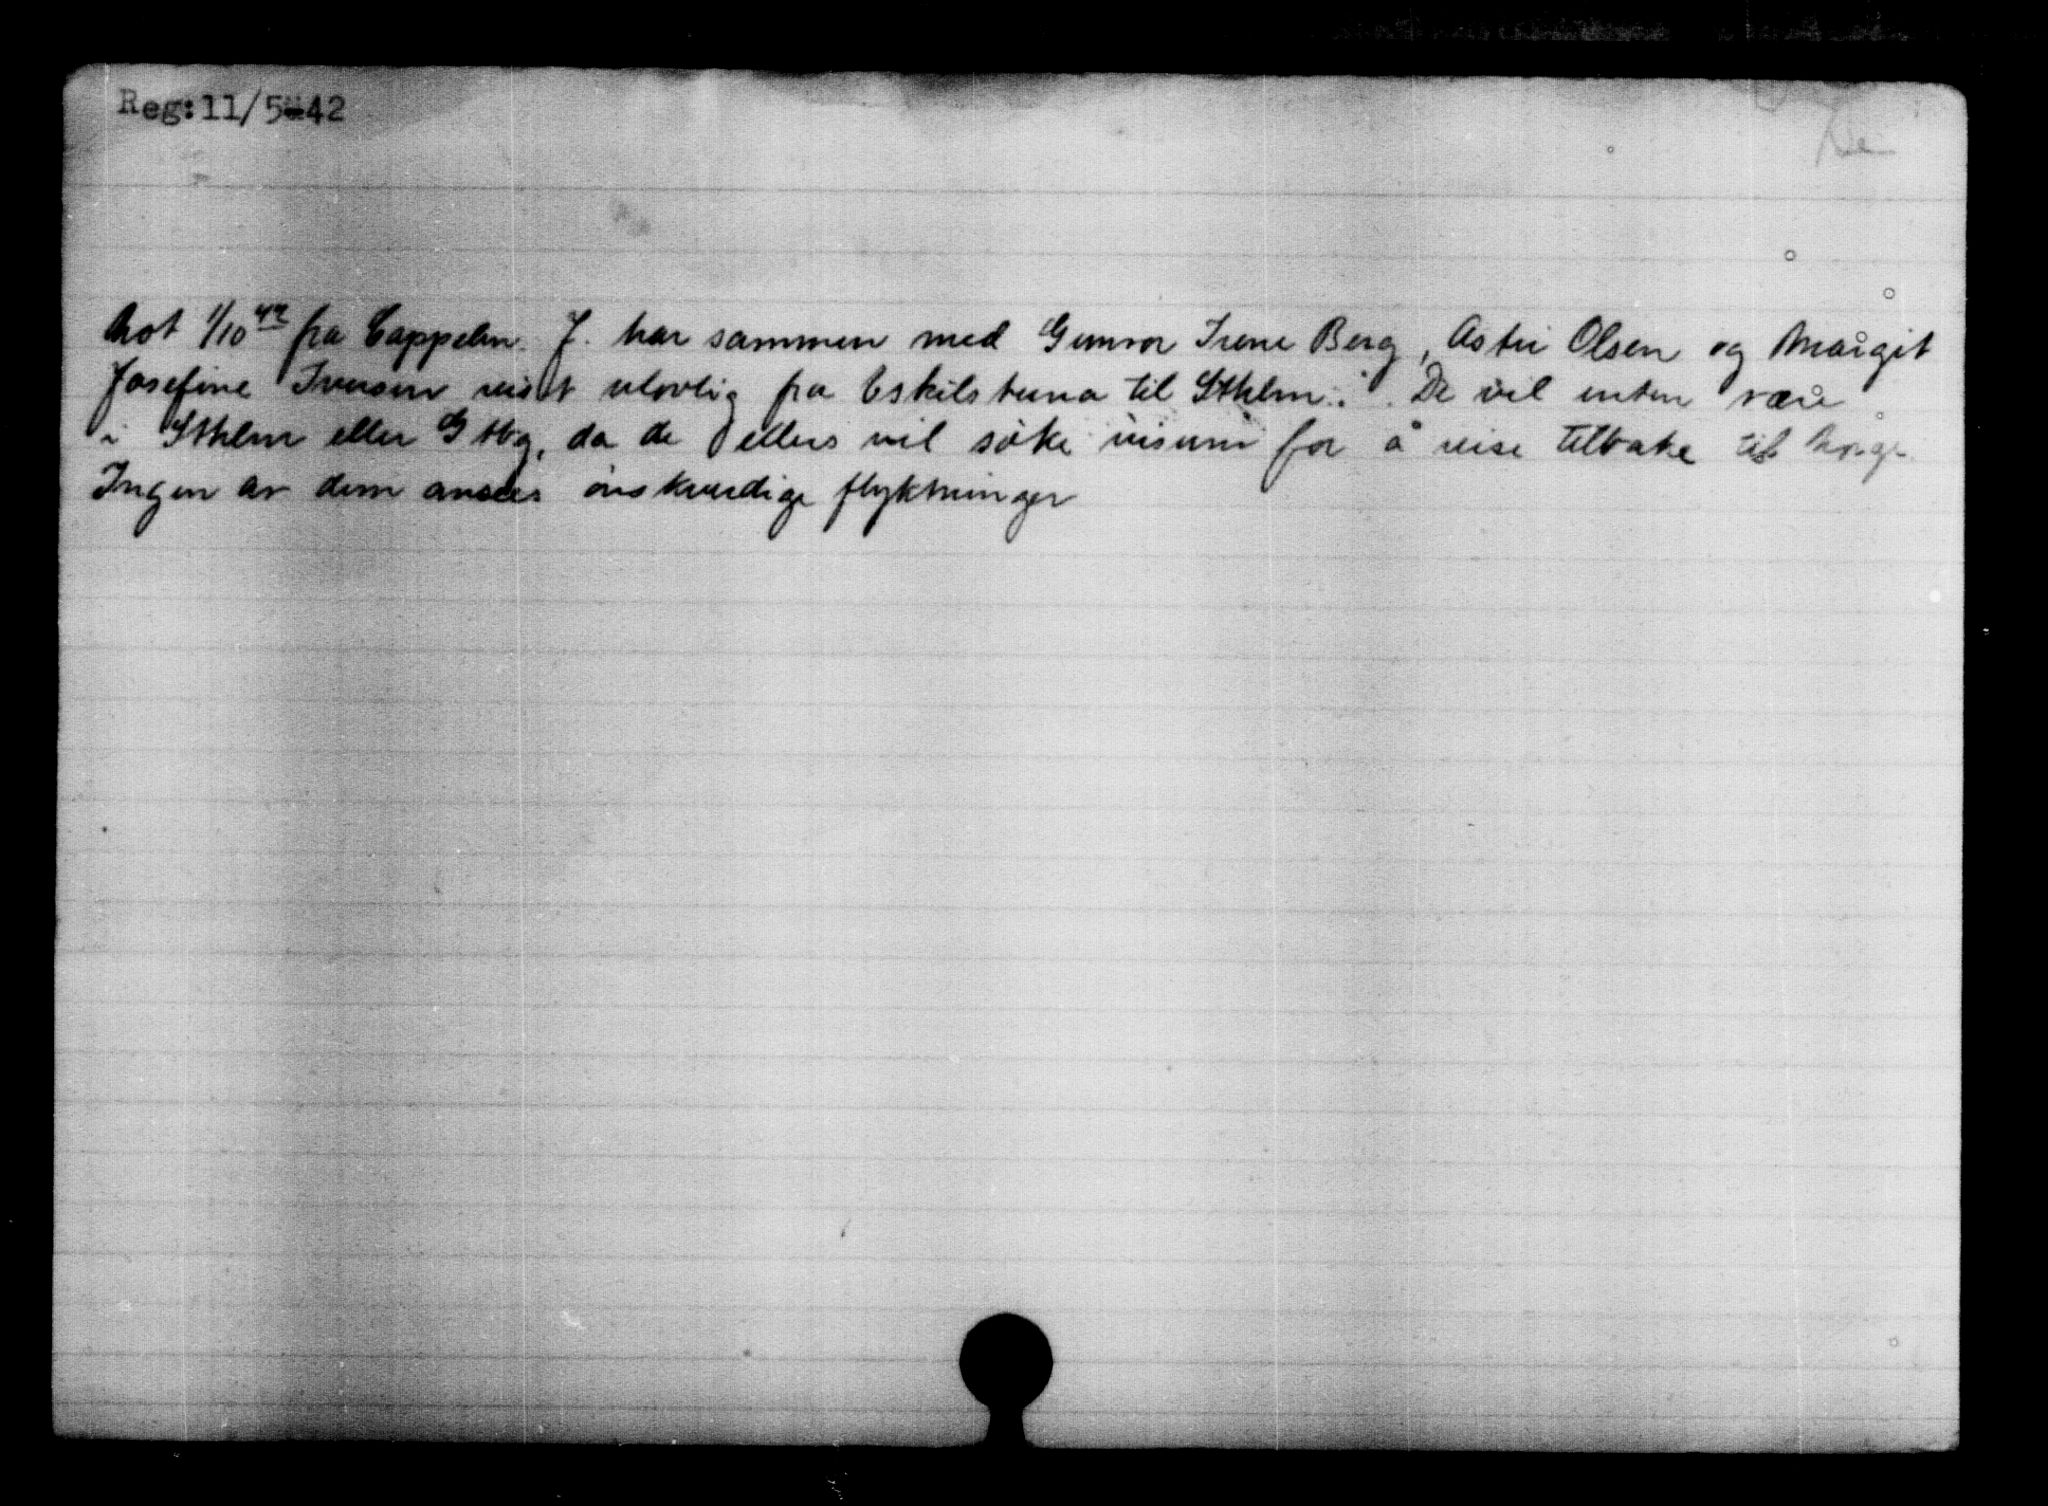 Reg:11/5-42
Not 1/10 42 fra Cappelen. J. har sammen med Gunvor Irene Berg, Astri Olsen og Margit
Josefine Iversen reist ulovlig fra Eskilstuna til Sthlm. De vil enten være
i Sthlm eller Gtbg, da de ellers vil söke visum for å reise tilbake til Norge
Ingen av dem ansees önskverdige flyktninger